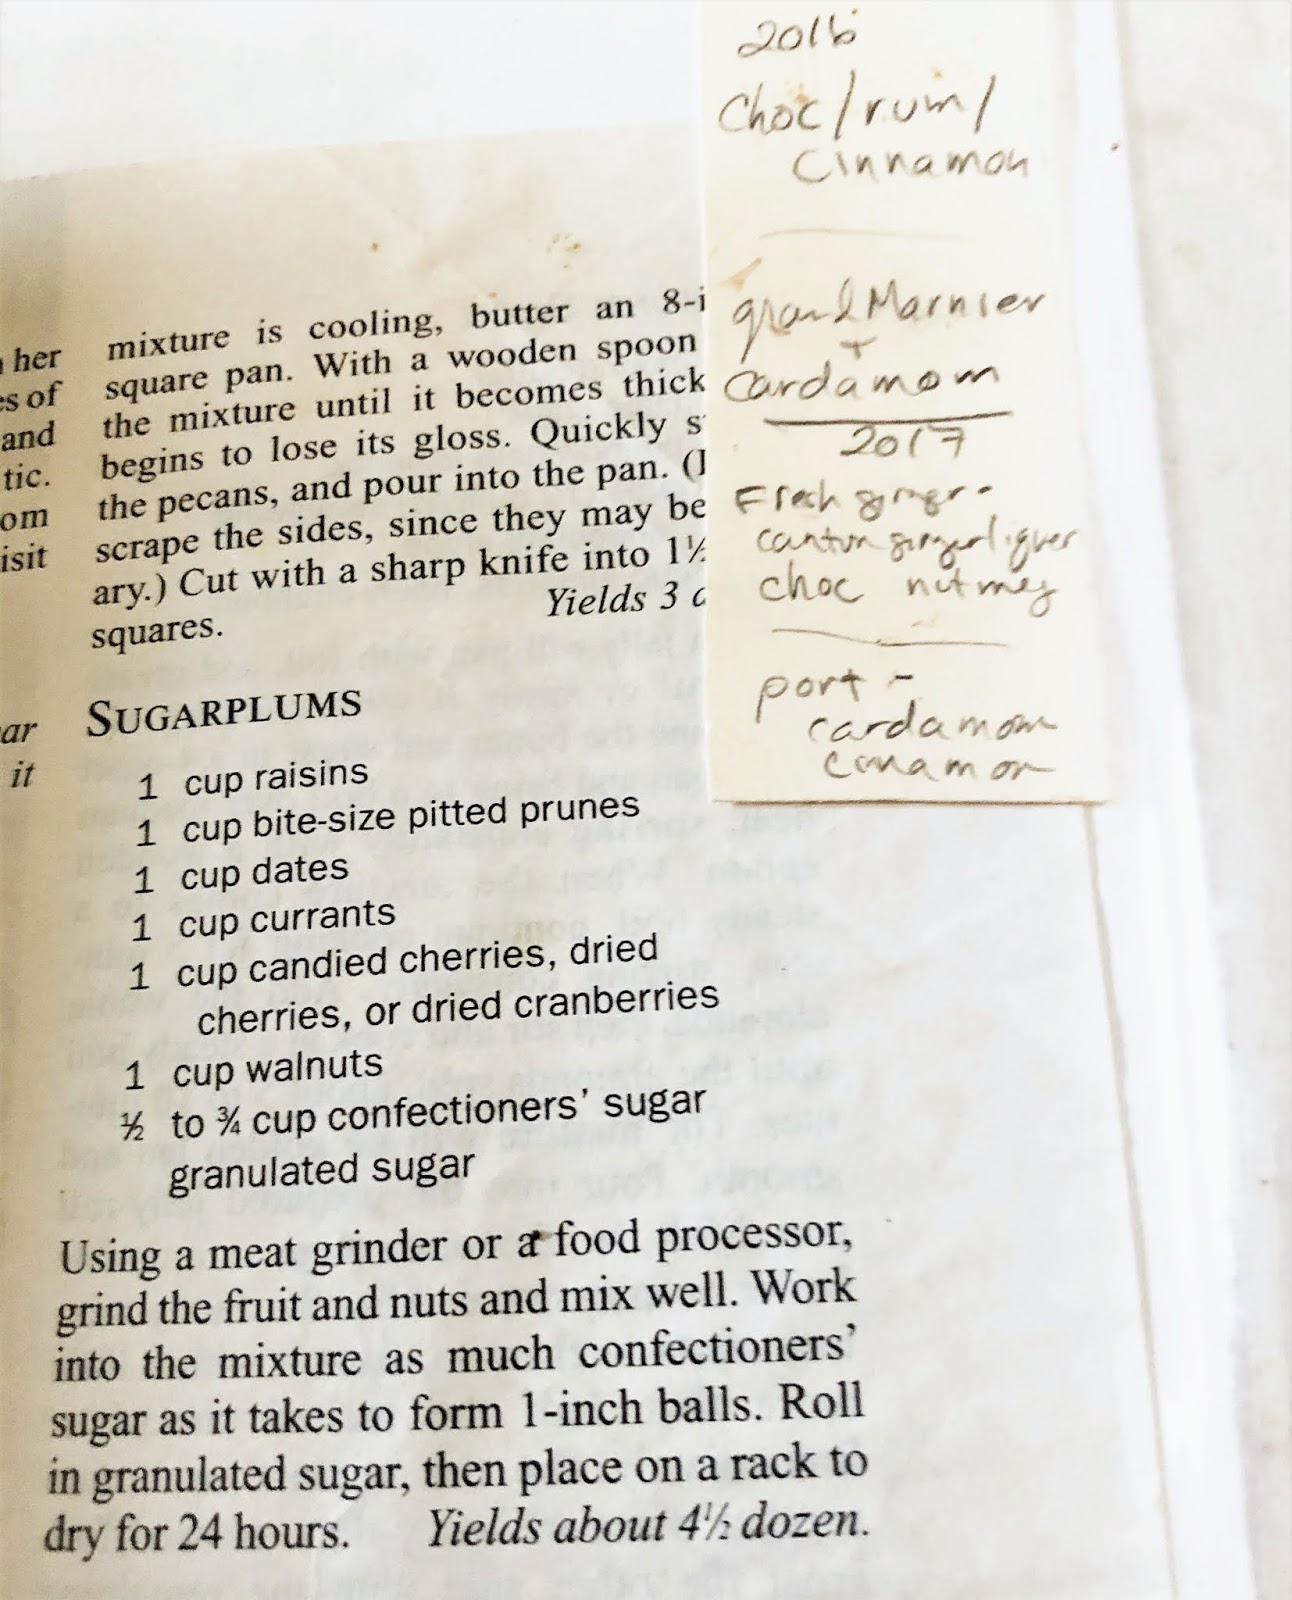 2016
Choc/rum/
Cinnamon
grand Marnier
+
Cardamom
2017
Fresh ginger -
canton ginger liquer
choc nutmeg
port -
cardamom
cinnamon
her
es of
and
tic.
om
isit
ar
it
mixture is cooling, butter an 8-i
square pan. With a wooden spoon
the mixture until it becomes thick
begins to lose its gloss. Quickly s
the pecans, and pour into the pan. (
scrape the sides, since they may be
ary.) Cut with a sharp knife into 1½
squares. Yields 3
SUGARPLUMS
1 cup raisins
1 cup bite-size pitted prunes
1 cup dates
1 cup currants
1 cup candied cherries, dried
cherries, or dried cranberries
1 cup walnuts
½ to ¾ cup confectioners' sugar
granulated sugar
Using a meat grinder or a food processor,
grind the fruit and nuts and mix well. Work
into the mixture as much confectioners'
sugar as it takes to form 1-inch balls. Roll
in granulated sugar, then place on a rack to
dry for 24 hours. Yields about 4½ dozen.